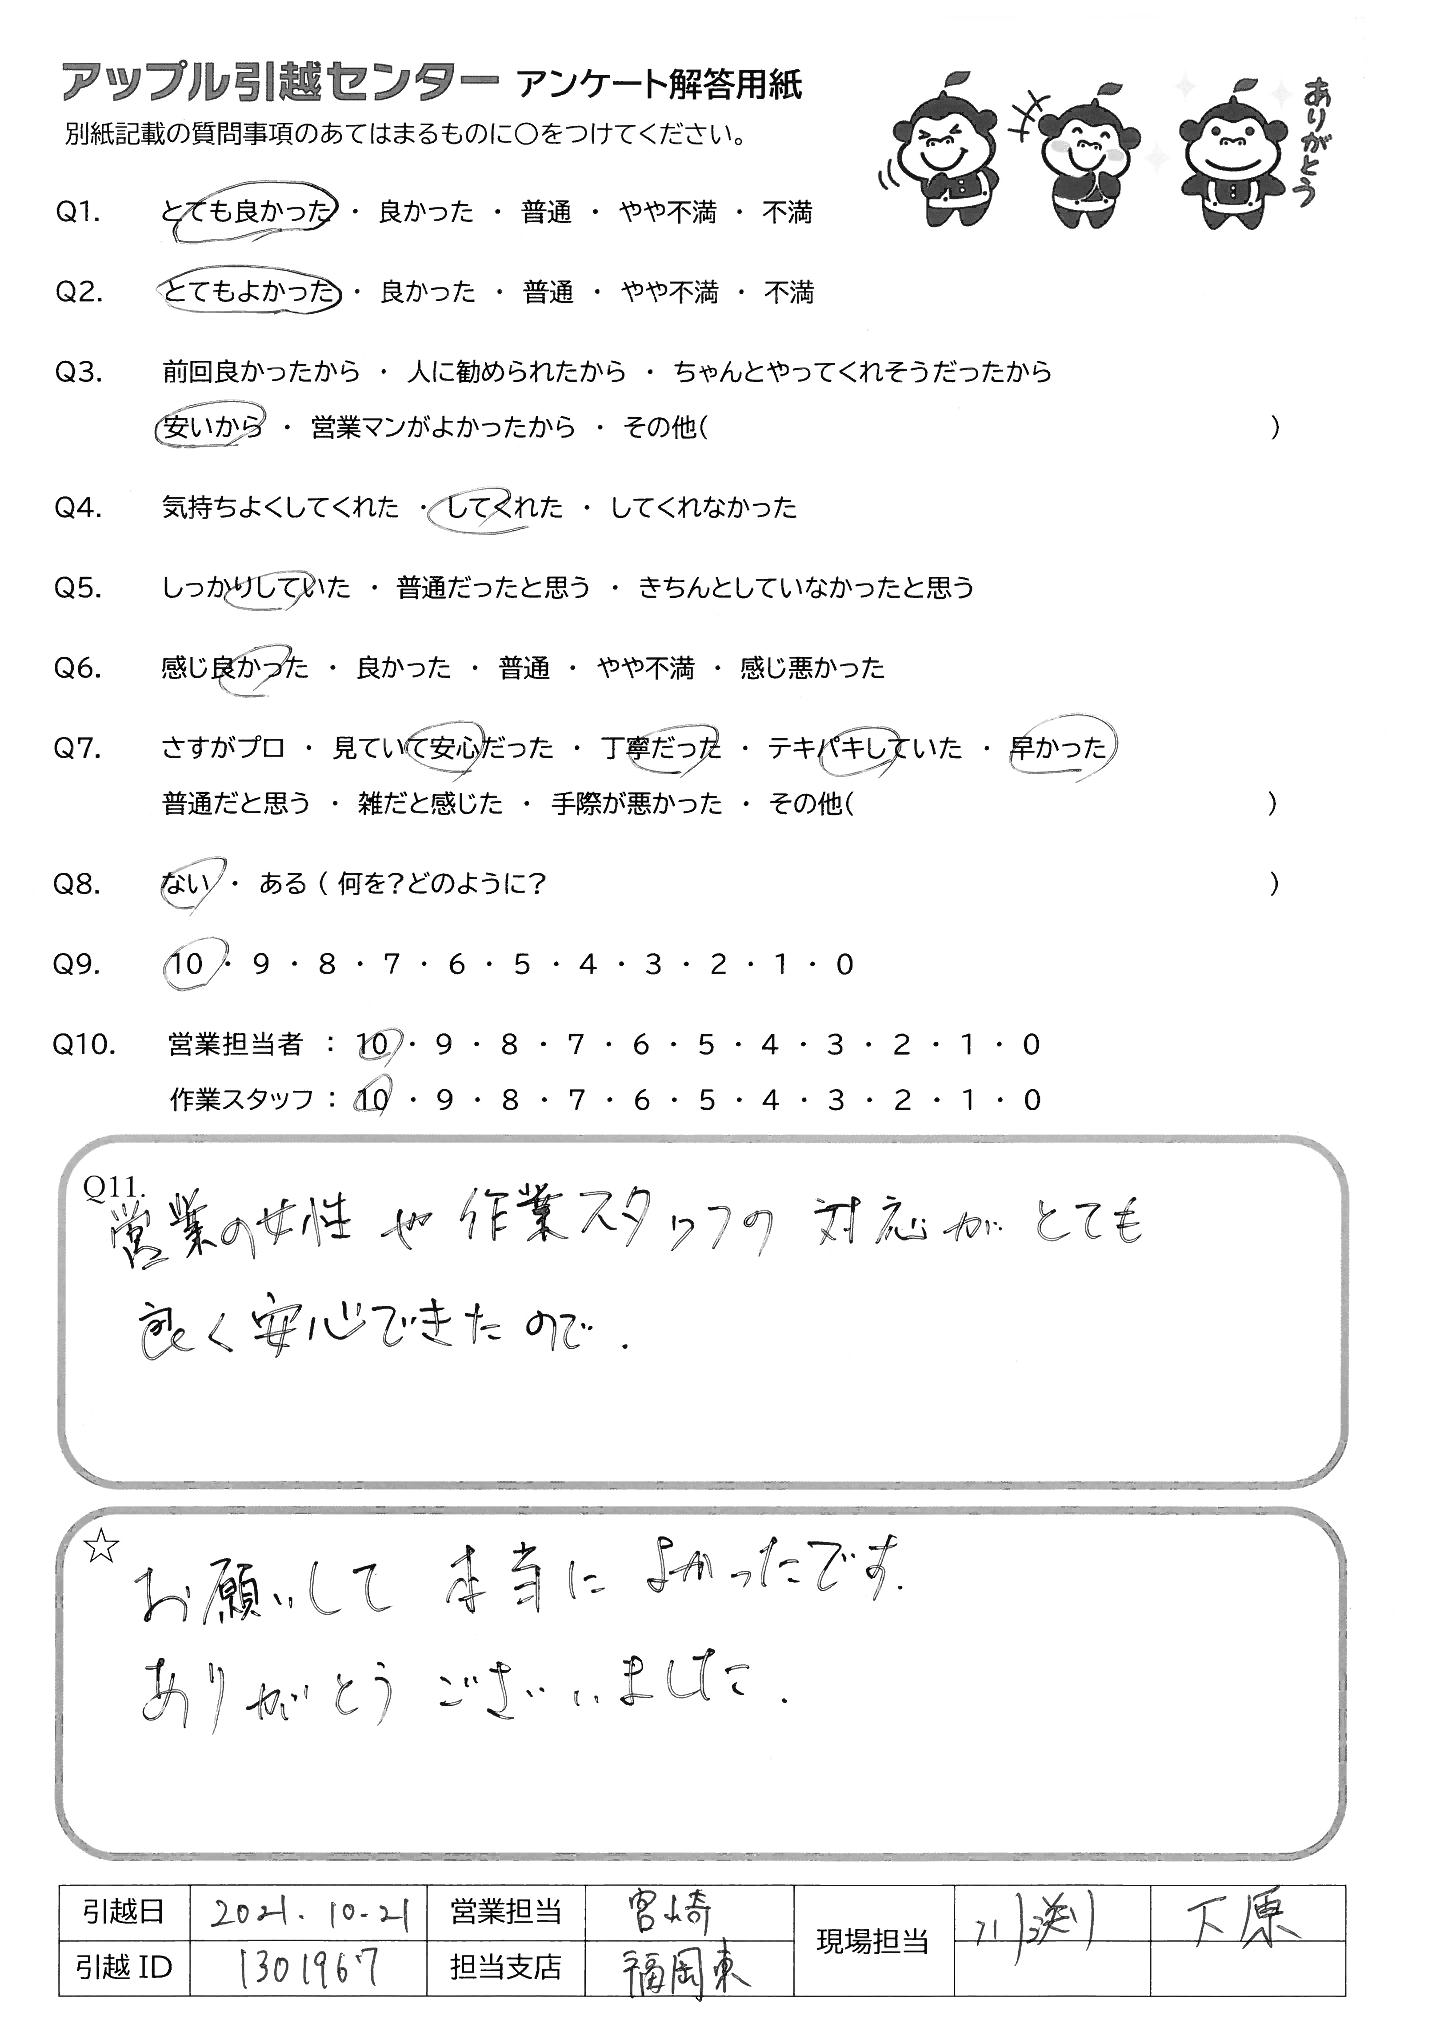 アップル引越センター アンケート解答用紙
別紙記載の質問事項のあてはまるものに〇をつけてください。
ありがとう
Q1. とても良かった ・ 良かった ・ 普通 ・ やや不満 ・ 不満
Q2. とてもよかった ・ 良かった ・ 普通 ・ やや不満 ・ 不満
Q3. 前回良かったから ・ 人に勧められたから ・ ちゃんとやってくれそうだったから
安いから ・ 営業マンがよかったから ・ その他( )
Q4. 気持ちよくしてくれた ・ してくれた ・ してくれなかった
Q5. しっかりしていた ・ 普通だったと思う ・ きちんとしていなかったと思う
Q6. 感じ良かった ・ 良かった ・ 普通 ・ やや不満 ・ 感じ悪かった
Q7. さすがプロ ・ 見ていて安心だった ・ 丁寧だった ・ テキパキしていた ・ 早かった
普通だと思う ・ 雑だと感じた ・ 手際が悪かった ・ その他( )
Q8. ない ・ ある ( 何を?どのように? )
Q9. 10 ・ 9 ・ 8 ・ 7 ・ 6 ・ 5 ・ 4 ・ 3 ・ 2 ・ 1 ・ 0
Q10. 営業担当者 : 10 ・ 9 ・ 8 ・ 7 ・ 6 ・ 5 ・ 4 ・ 3 ・ 2 ・ 1 ・ 0
作業スタッフ : 10 ・ 9 ・ 8 ・ 7 ・ 6 ・ 5 ・ 4 ・ 3 ・ 2 ・ 1 ・ 0
Q11.
営業の女性や作業スタッフの対応がとても
良く安心できたので.
☆
お願いして本当によかったです.
ありがとうございました.
引越日 2021.10.21 営業担当 宮崎 現場担当 下原
引越ID 1301967 担当支店 福岡東